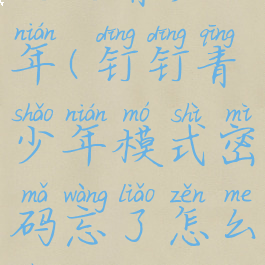 nián dīng dīng qīng
年(钉钉青
shǎo nián mó shì mì
少年模式密
mǎ wàng liǎo zěn me
码忘了怎么